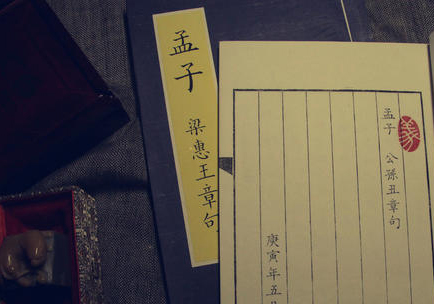 孟子
梁惠王章句
義
孟子 公孫丑章句
庚寅年五